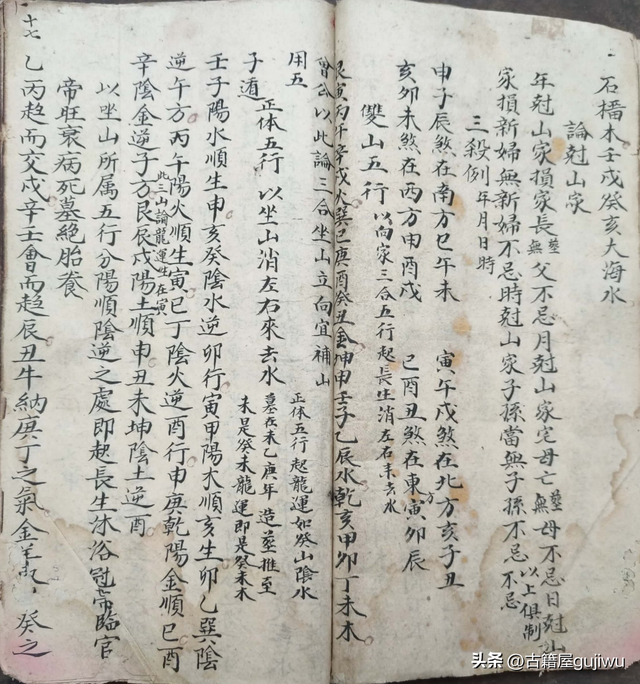 石榴木壬戌癸亥大海水
論尅山家
年尅山家損家長無塟父不忌月尅山家宅母亡無塟母不忌日尅山
家損新婦無新婦不忌時尅山家子孫當無子孫不忌以上俱制不忌
三殺例年月日時
申子辰煞在南方巳午未 寅午戌煞在北方亥子丑
亥卯未煞在西方申酉戌 巳酉丑煞在東方寅卯辰
雙山五行以向家三合五行起長生消左右來去水
艮寅丙午辛戌火巽巳庚酉癸丑金坤申壬子乙辰水乾亥甲卯丁未木
曾公以此論三合坐山立向宜補山
用五
正体五行以坐山消左右來去水 正体五行起龍運如癸山陰水
子遁 墓在未乙庚年造塟推至
未是癸未龍運即是癸未木
壬子陽水順生申亥癸陰水逆卯行寅甲陽木順亥生卯乙巽陰
逆午方丙午陽火順生寅巳丁陰火逆酉行申庚乾陽金順巳酉
辛陰金逆子方艮辰戌陽土順申丑未坤陰土逆酉
此三山論龍運生在寅
以坐山所属五行分陽順陰逆之處即起長生沐浴冠帶臨官
帝旺衰病死墓絶胎養
乙丙趋而交戌辛壬會而趋辰丑牛納庚丁之氣金羊 癸之
十七
头条 @古籍屋gujiwu